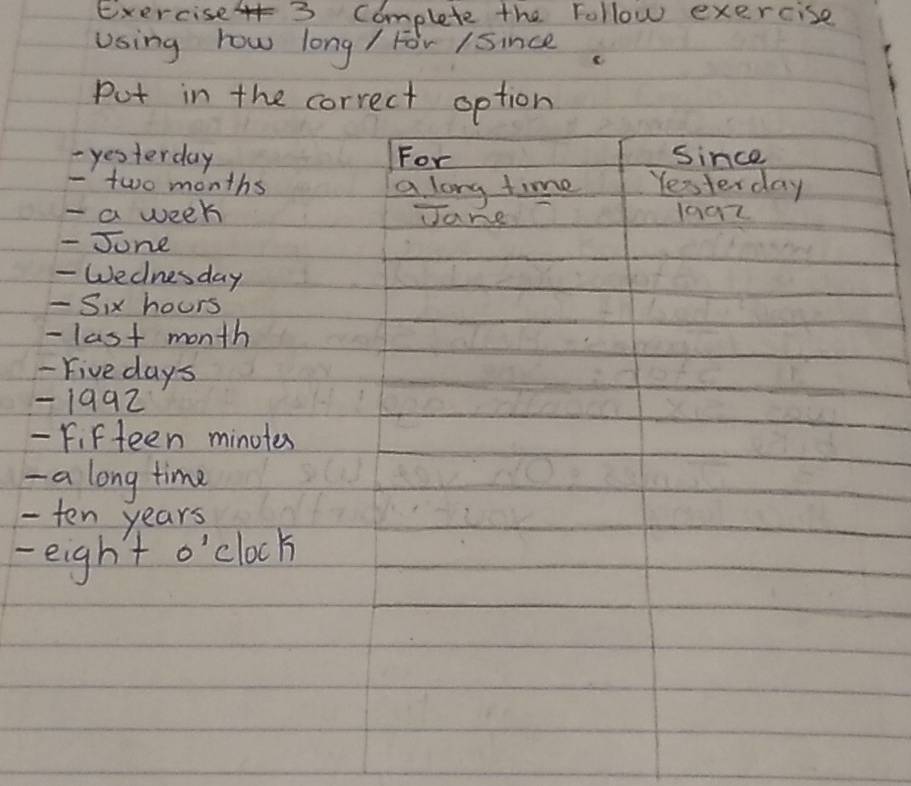 Exercise 3 Complete the Follow exercise
Using how long / For / Since
Put in the correct option
- yesterday
- two months
- a week
- June
- Wednesday
- Six hours
- last month
- Five days
- 1992
- Fifteen minutes
- a long time
- ten years
- eight o'clock
For Since
a long time Yesterday
June 1992